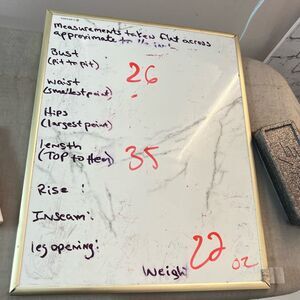 Measurements taken flat across
approximate to the inch
Bust
(pit to pit) 26
Waist
(smallest point)
Hips
(largest point)
Length
(TOP to Hem) 35
Rise :
Inseam:
leg opening:
Weigh 22 oz